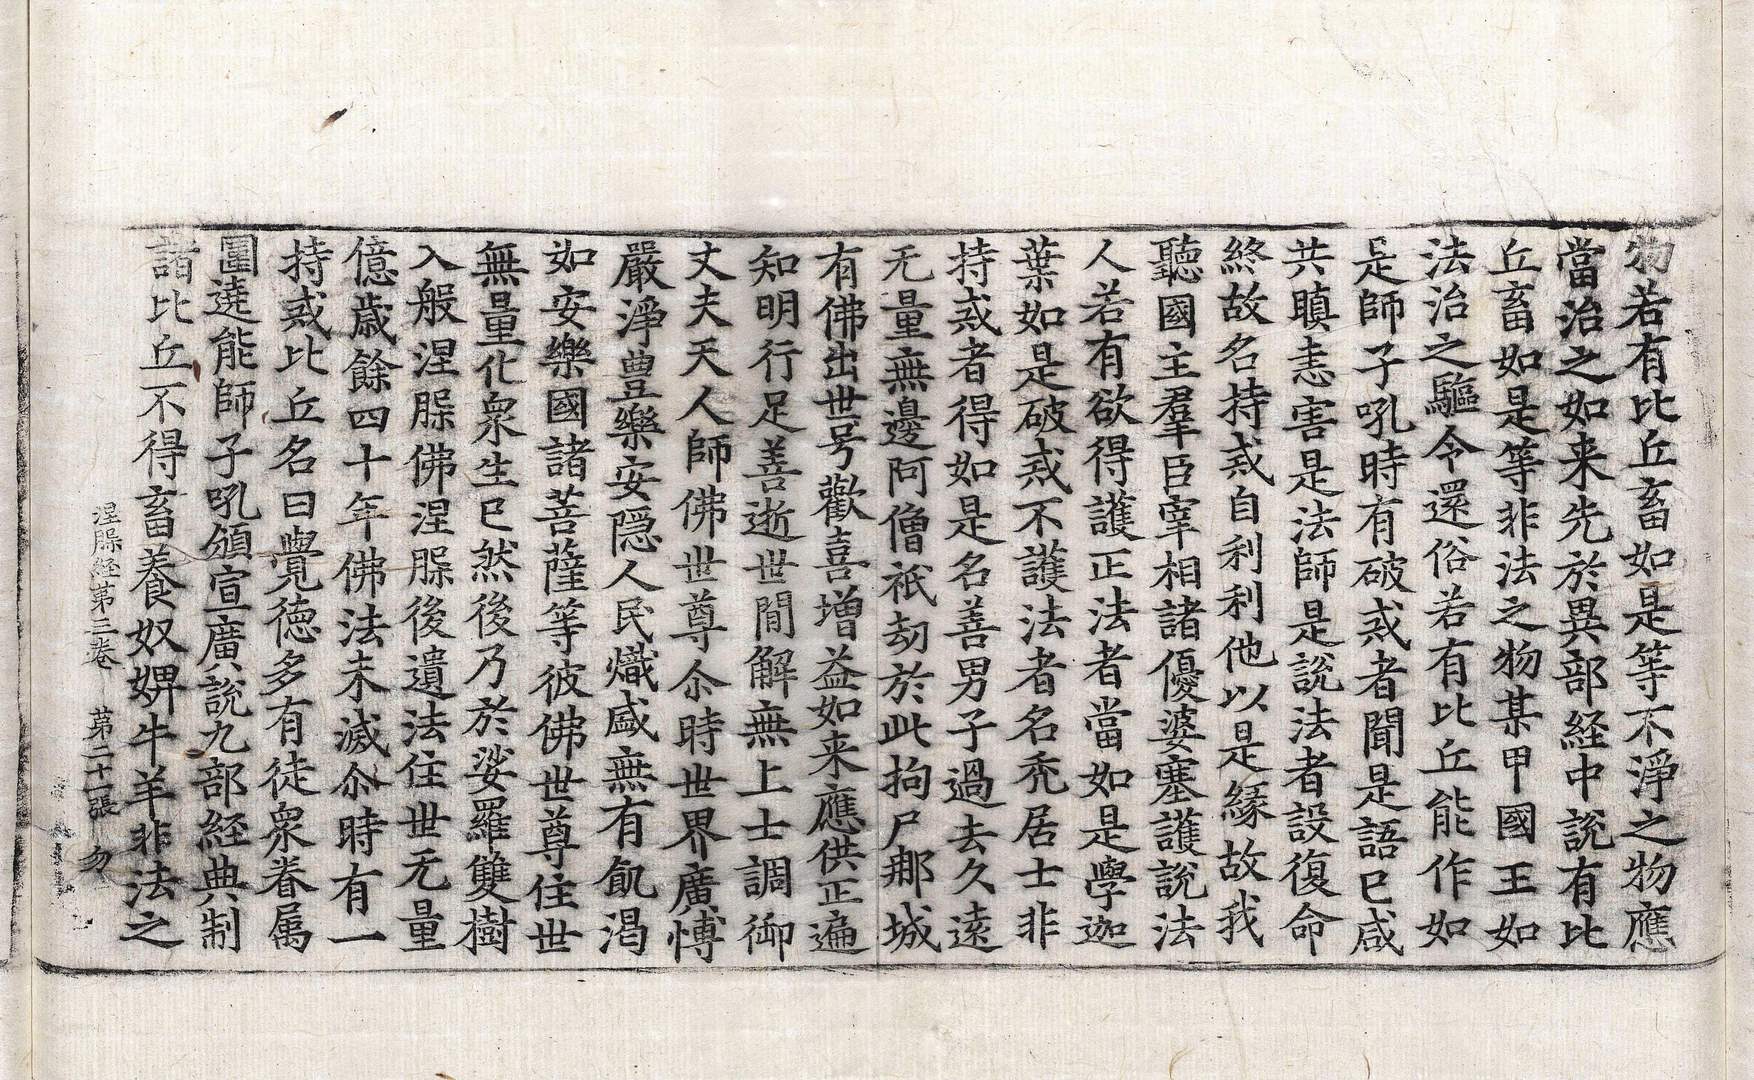 物若有比丘畜如是等不淨之物應
當治之如来先於異部経中說有比
丘畜如是等非法之物某甲國王如
法治之驅令還俗若有比丘能作如
是師子吼時有破戒者聞是語已咸
共瞋恚害是法師是說法者設復命
終故名持戒自利利他以是緣故我
聽國主羣臣宰相諸優婆塞護說法
人若有欲得護正法者當如是學迦
葉如是破戒不護法者名禿居士非
持戒者得如是名善男子過去久遠
无量無邊阿僧祇劫於此拘尸那城
有佛出世号歡喜增益如来應供正遍
知明行足善逝世間解無上士調御
丈夫天人師佛世尊尒時世界廣博
嚴淨豊樂安隠人民熾盛無有飢渇
如安樂國諸菩薩等彼佛世尊住世
無量化衆生已然後乃於娑羅雙樹
入般涅腺佛涅腺後遺法住世无量
億歲餘四十年佛法未滅尒時有一
持戒比丘名曰覺徳多有徒衆眷属
圍遶能師子吼頒宣廣說九部経典制
諸比丘不得畜養奴婢牛羊非法之
涅腺経第三卷 第二十一張 勿